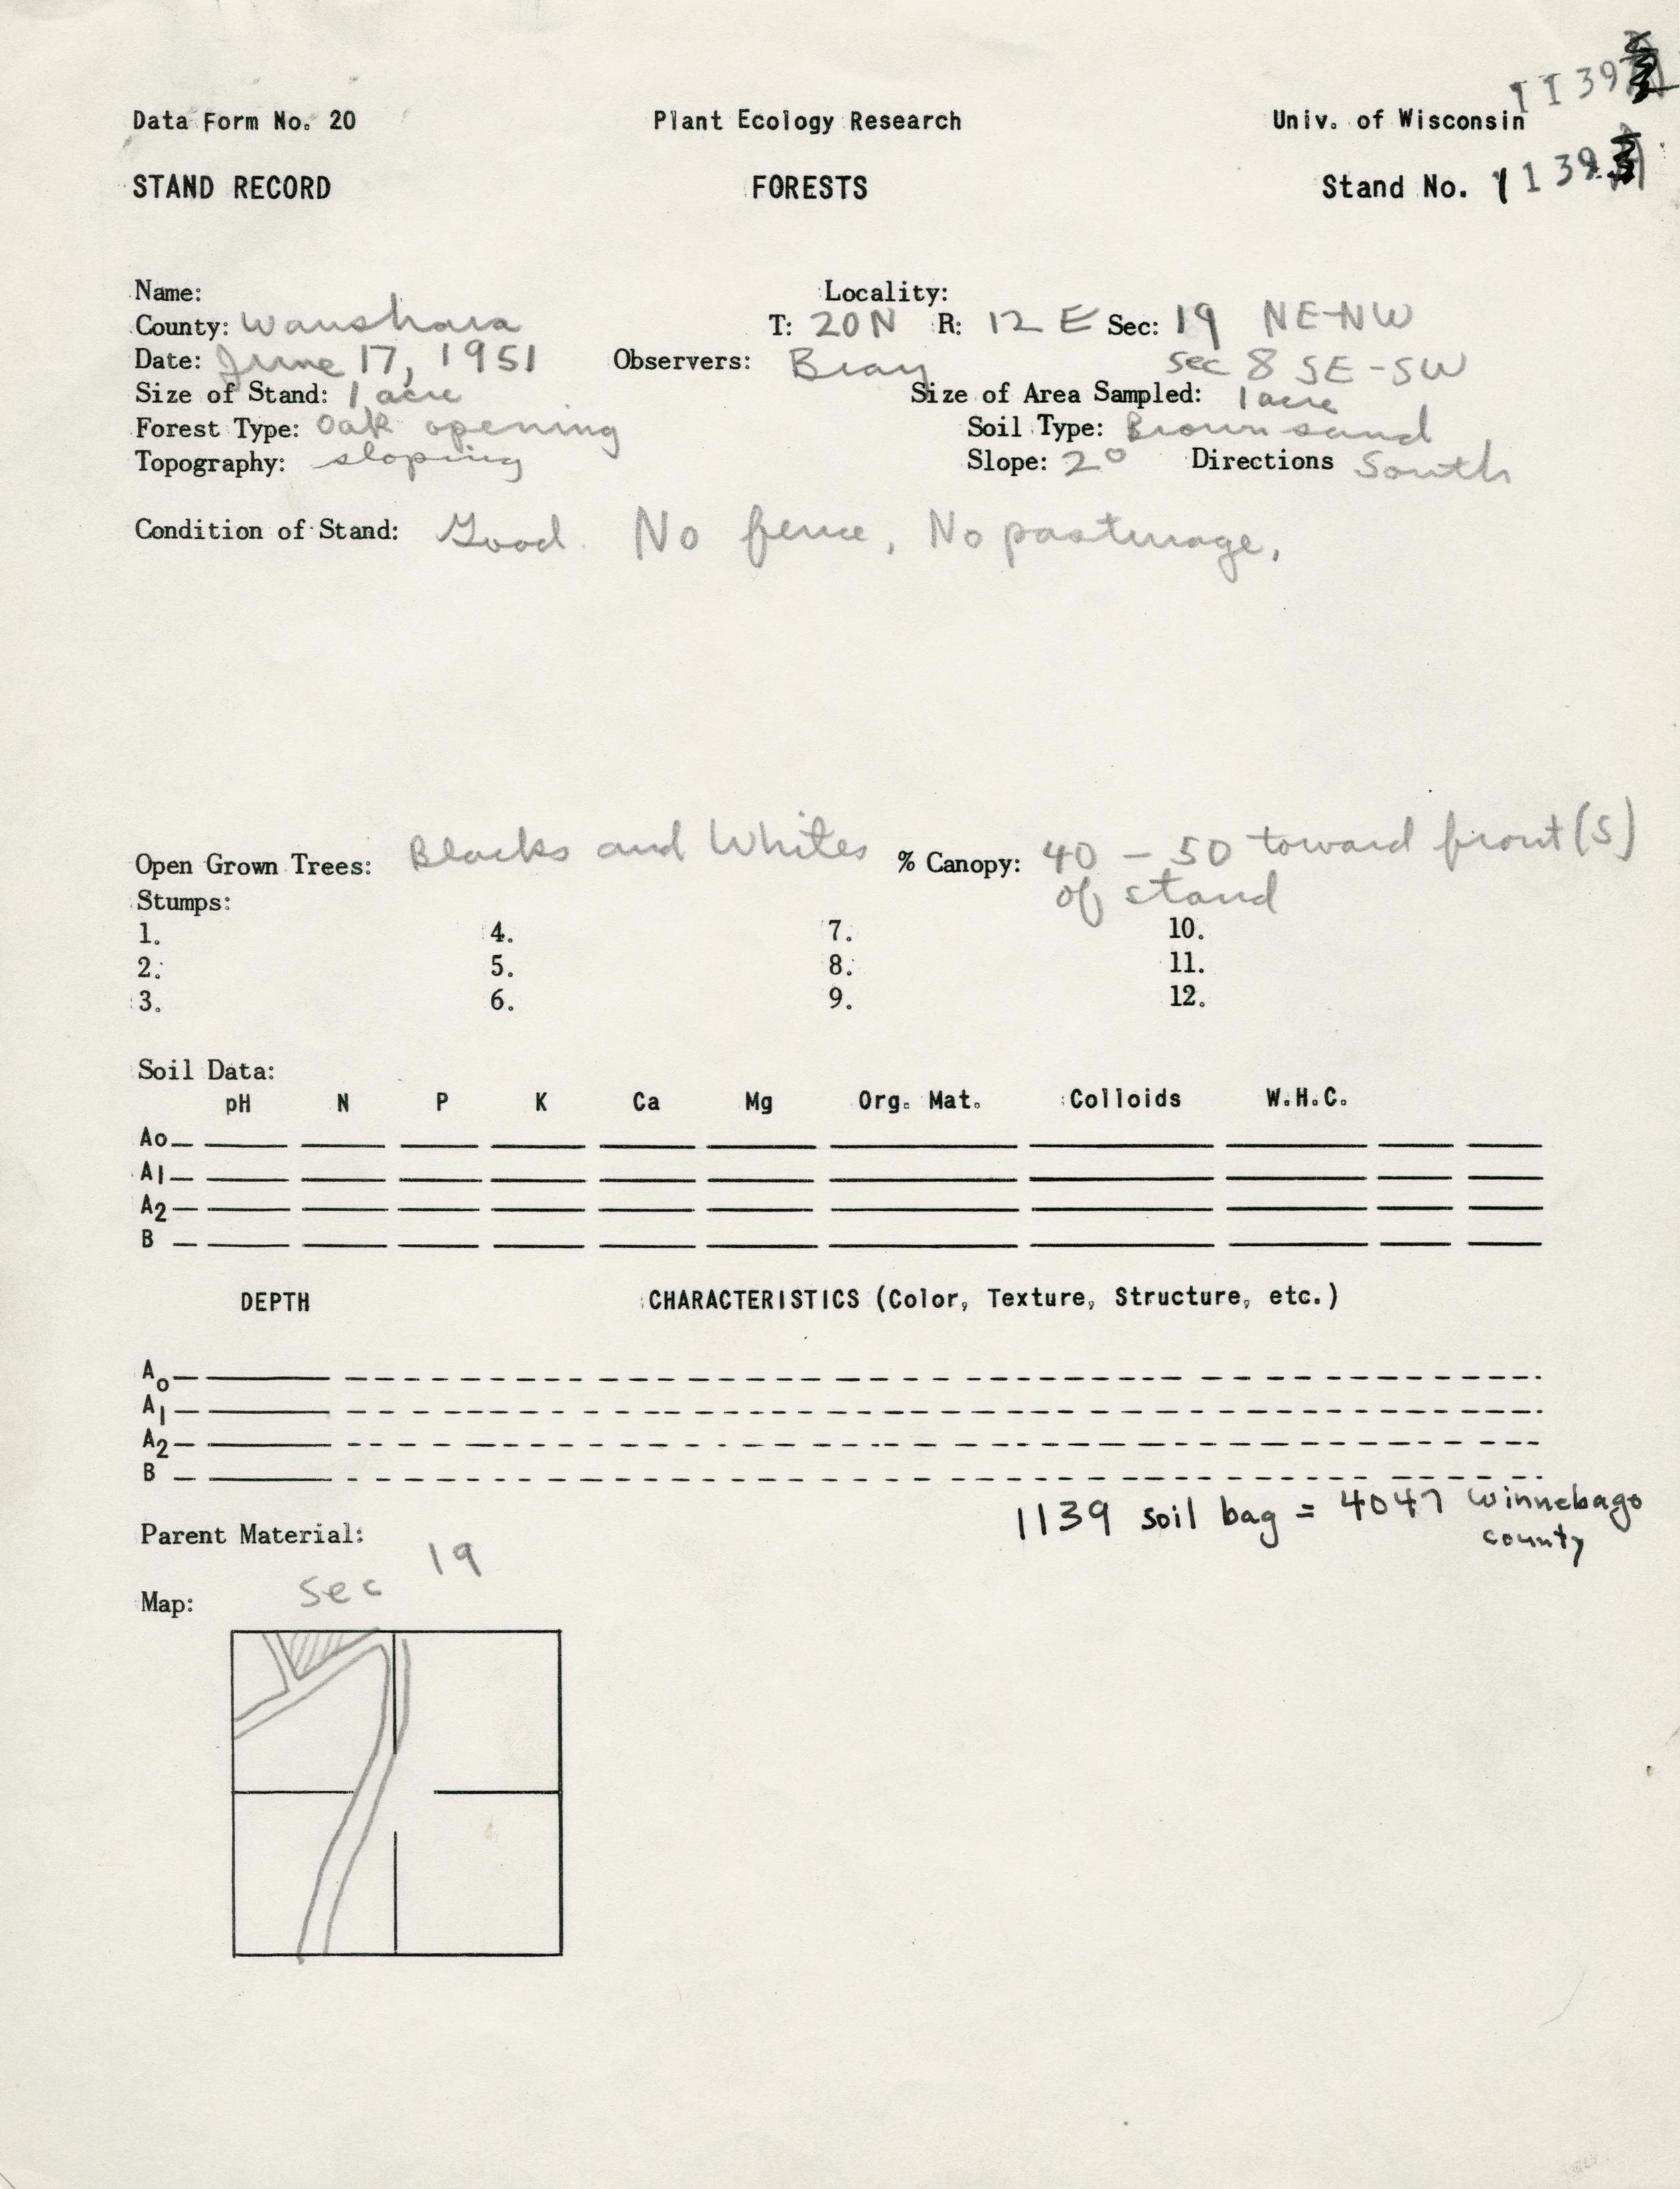 1139
Data Form No. 20 Plant Ecology Research Univ. of Wisconsin
STAND RECORD FORESTS Stand No. 1139
Name: Locality:
County: Waushara T: 20N R: 12 E Sec: 19 NE-NW
Date: June 17, 1951 Observers: Bray sec 8 SE-SW
Size of Stand: 1 acre Size of Area Sampled: 1 acre
Forest Type: Oak opening Soil Type: Brown sand
Topography: sloping Slope: 2° Directions South
Condition of Stand: Good. No fence, No pasturage,
Open Grown Trees: Blacks and Whites % Canopy: 40 - 50 toward front (S)
of stand
Stumps:
1. 4. 7. 10.
2. 5. 8. 11.
3. 6. 9. 12.
Soil Data:
pH N P K Ca Mg Org. Mat. Colloids W.H.C.
Ao
A1
A2
B
DEPTH CHARACTERISTICS (Color, Texture, Structure, etc.)
Ao
A1
A2
B
1139 soil bag = 4047 Winnebago
county
Parent Material:
Sec 19
Map: